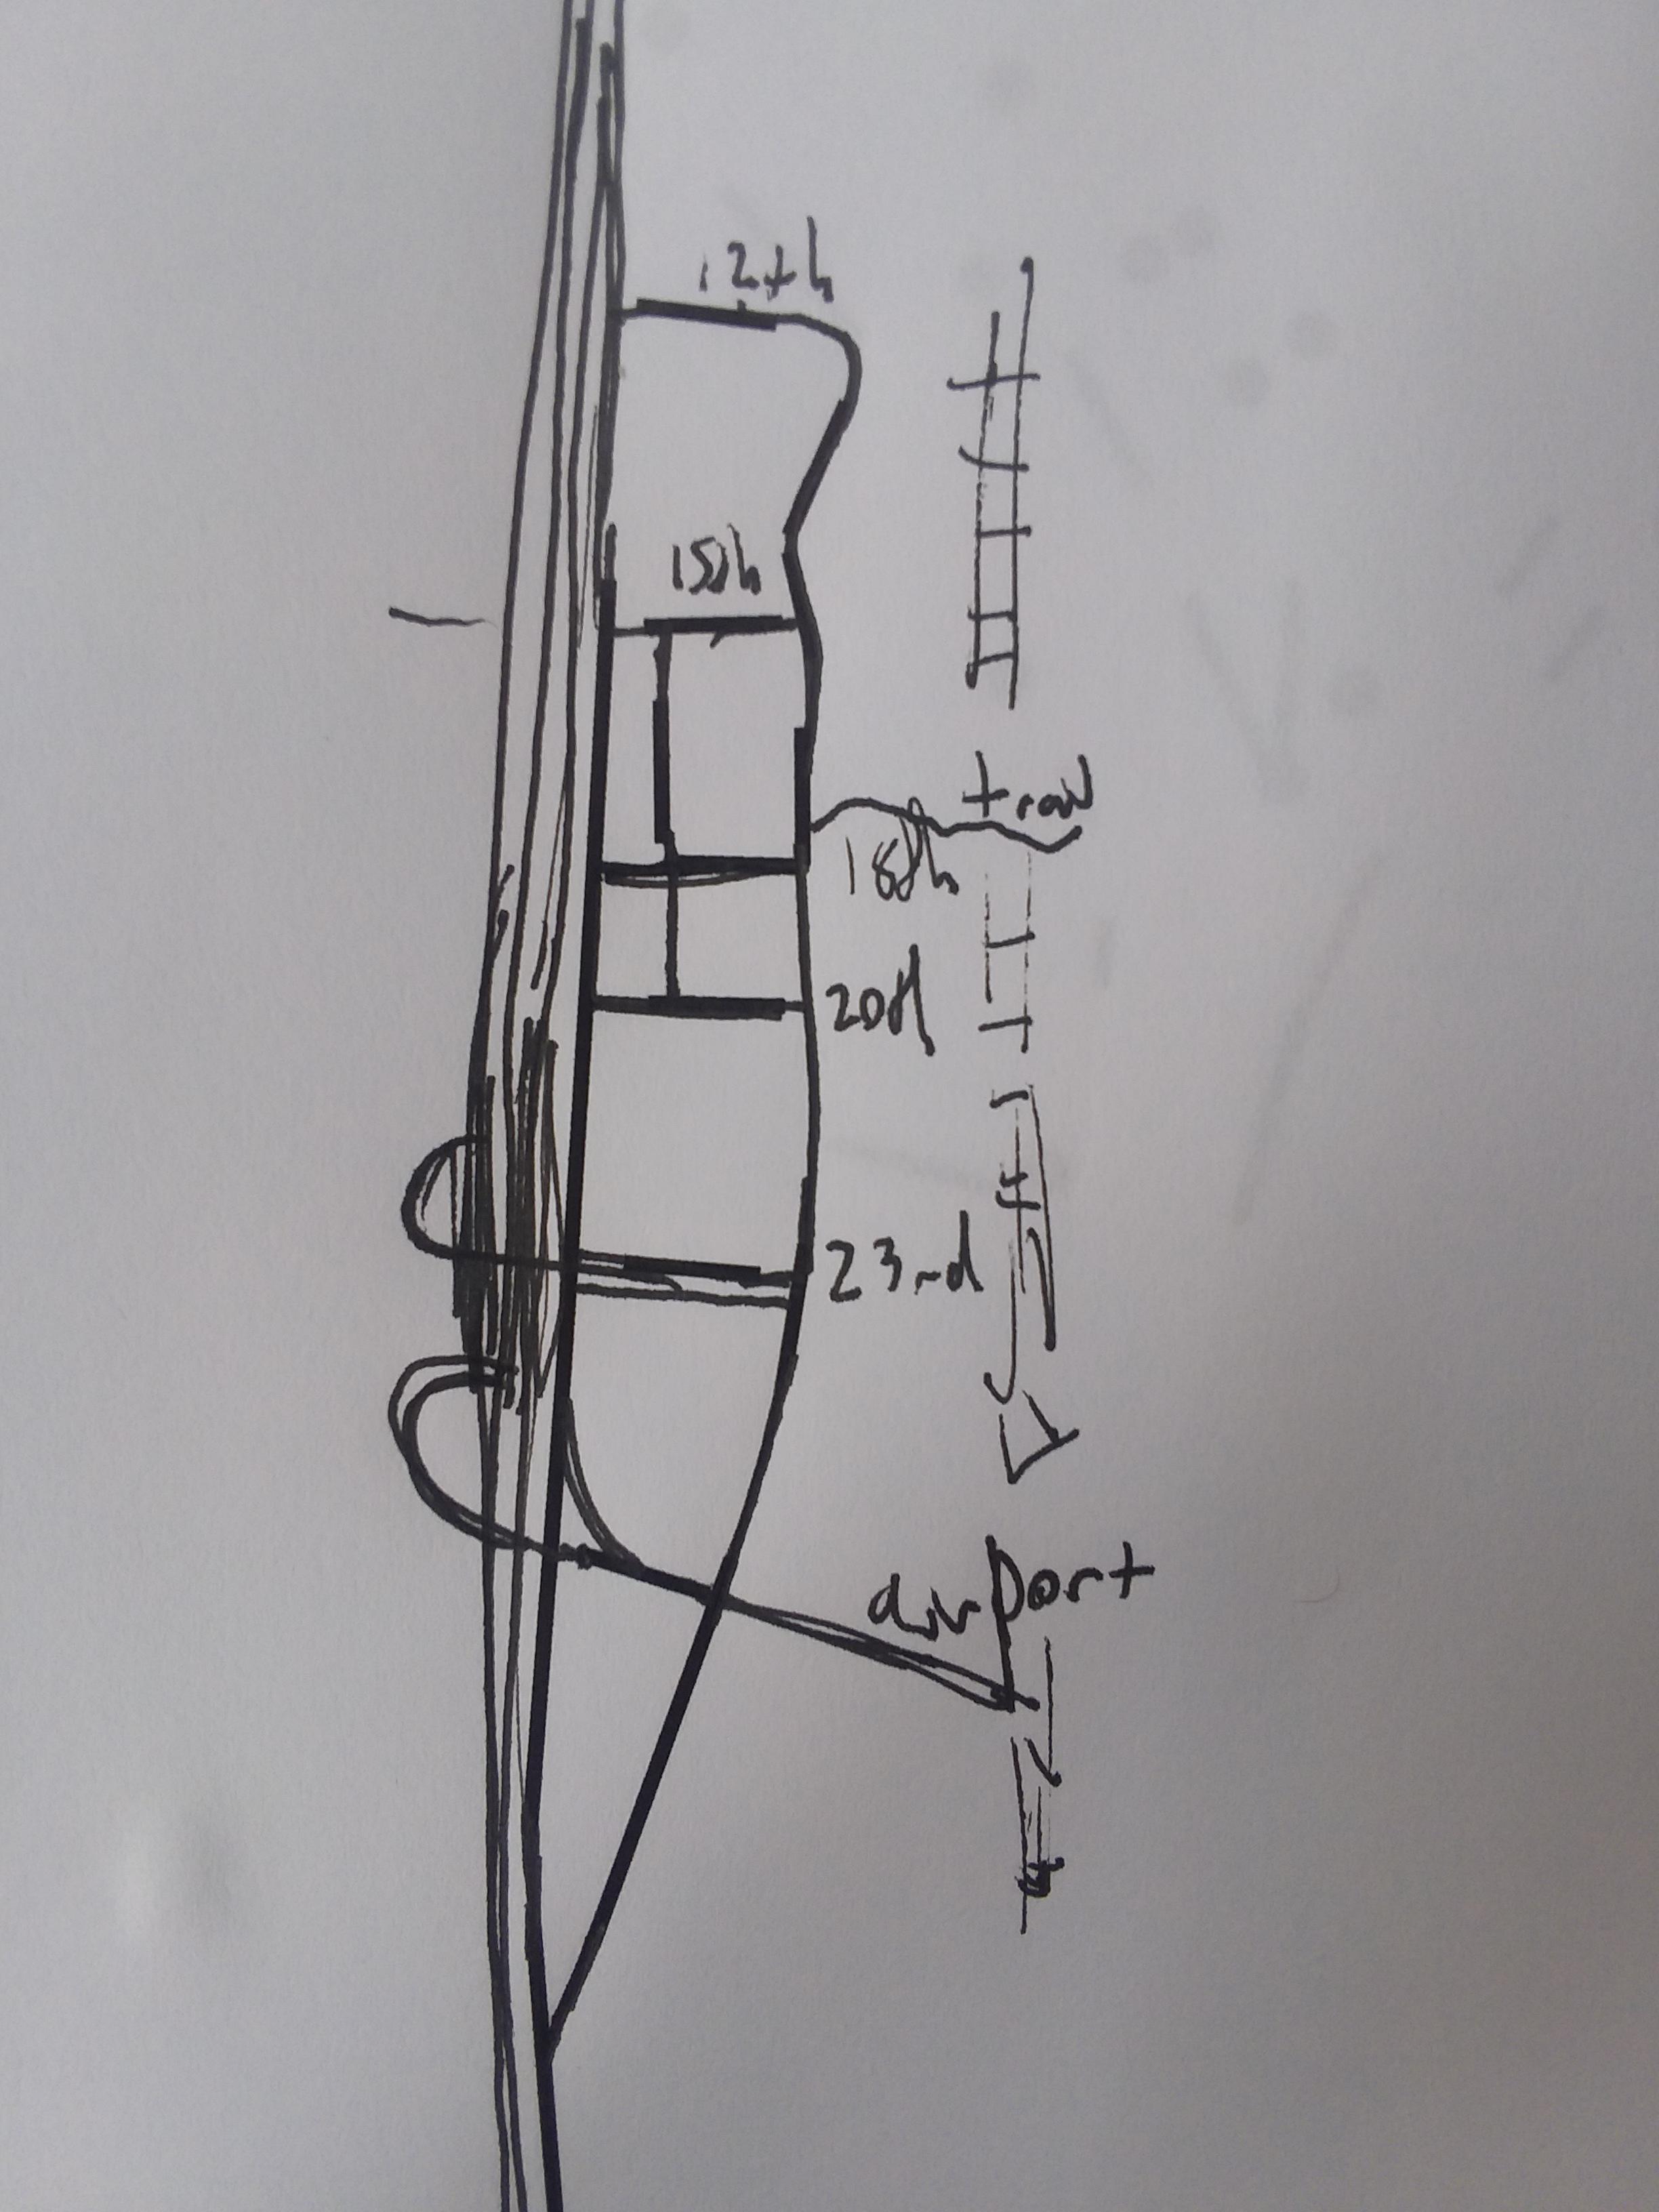 12th
15th
trail
18th
20th
23rd
airport